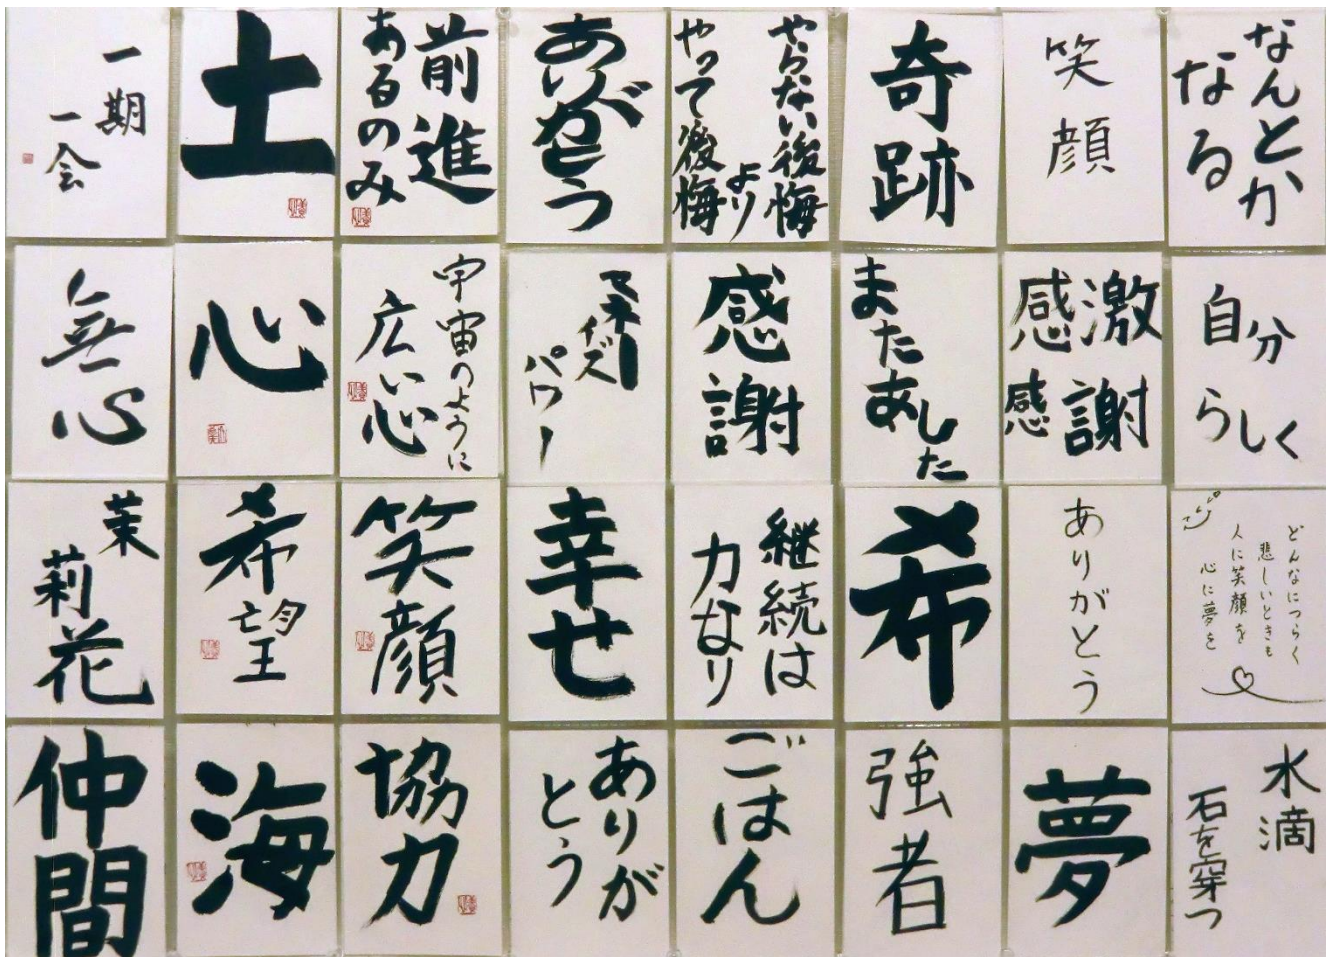 一期
一会
土
前進
あるのみ
ありがとう
やらない後悔
より
やって後悔
奇跡
笑顔
なんとか
なる
無心
心
宇宙のように
広い心
マネー
イズ
パワー
感謝
また
あした
感激
感謝
自分
らしく
茉
莉花
希望
笑顔
幸せ
継続は
力なり
希
ありがとう
どんなにつらく
悲しいときも
人に笑顔を
心に夢を
仲間
海
協力
ありが
とう
ごはん
強者
夢
水滴
石を穿つ